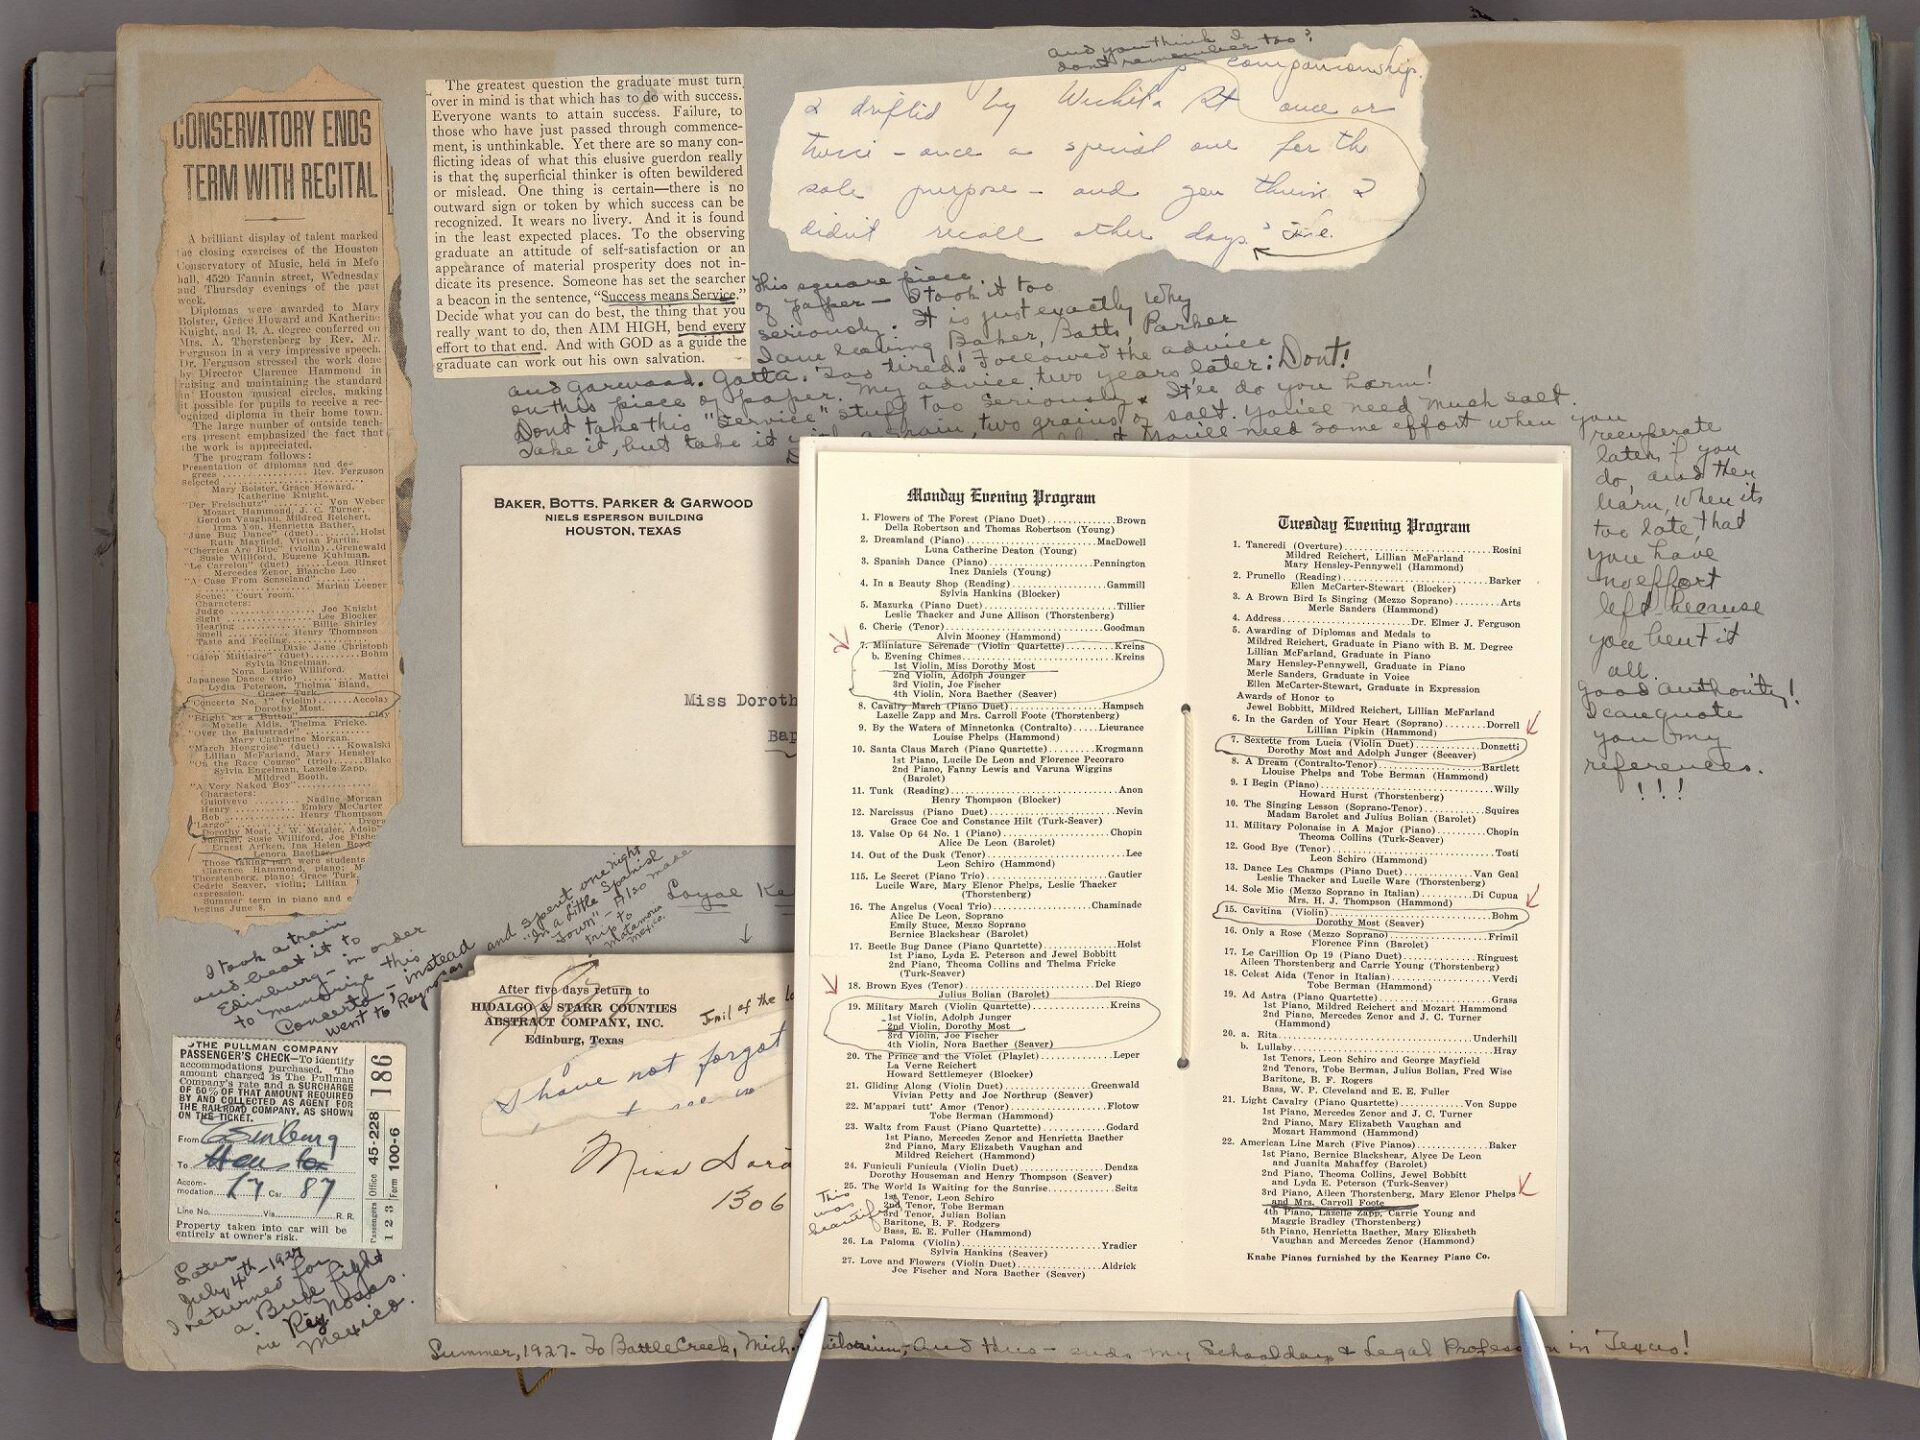 CONSERVATORY ENDS
TERM WITH RECITAL
A brilliant display of talent marked
the closing exercises of the Houston
Conservatory of Music, held in Mefo
hall, 4520 Fannin street, Wednesday
and Thursday evenings of the past
week.
Diplomas were awarded to Mary
Bolster, Grace Howard and Katherine
Knight, and B. A. degree conferred on
Mrs. A. Thorstenberg by Rev. Mr.
Ferguson in a very impressive speech.
Dr. Ferguson stressed the work done
by Director Clarence Hammond in
raising and maintaining the standard
in Houston musical circles, making
it possible for pupils to receive a rec-
ognized diploma in their home town.
The large number of outside teach-
ers present emphasized the fact that
the work is appreciated.
The program follows:
Presentation of diplomas and de-
grees ........ Rev. Ferguson
Selected
Mary Bolster, Grace Howard,
Katherine Knight.
"Der Freischutz" ...... Von Weber
Mozart Hammond, J. C. Turner,
Gordon Vaughan, Mildred Reichert,
Irma Yon, Henrietta Bather.
"June Bug Dance" (duet) ...... Holst
Ruth Mayfield, Vivian Partin.
"Cherries Are Ripe" (violin) .. Grenewald
Susie Williford, Eugene Kuhlman.
"Le Carrelon" (duet) ...... Leon Ringet
Mercedes Zenor, Blanche Lee
"A Case From Senseland"
Marian Leeper
Scene: Court room.
Characters:
Judge ...... Joe Knight
Sight ...... Lee Blocker
Hearing ...... Billie Shirley
Smell ...... Henry Thompson
Taste and Feeling
Dixie Jane Christoph
"Galop Miltiaire" (duet) ...... Bohm
Sylvia Engelman,
Nora Louise Williford.
Japanese Dance (trio) ...... Mattei
Lydia Peterson, Thelma Bland,
Grace Turk.
"Concerto No. 1" (violin) ...... Accolay
Dorothy Most.
"Bright as a Button" ...... Clay
Mozelle Aldis, Thelma Fricke.
"Over the Balustrade"
Mary Catherine Morgan.
"March Hongroise" (duet) .... Kowalski
Lillian McFarland, Mary Hensley
"On the Race Course" (trio) ..... Blake
Sylvia Engelman, Lazelle Zapp,
Mildred Booth.
"A Very Naked Boy"
Characters:
Guinivevo ...... Nadine Morgan
Henry ...... Embry McCarter
Bob ...... Henry Thompson
"Largo"
Dorothy Most, J. W. Metzler, Adolp
Juenger, Susie Williford, Joe Fishe
Ernest Arfken, Ina Helen Boyd
Lenora Baether.
Those taking part were students
Clarence Hammond, piano; M
Thorstenberg, piano; Grace Turk,
Cedric Seaver, violin; Lillian
expression.
Summer term in piano and e
begins June 8.
The greatest question the graduate must turn
over in mind is that which has to do with success.
Everyone wants to attain success. Failure, to
those who have just passed through commence-
ment, is unthinkable. Yet there are so many con-
flicting ideas of what this elusive guerdon really
is that the superficial thinker is often bewildered
or mislead. One thing is certain—there is no
outward sign or token by which success can be
recognized. It wears no livery. And it is found
in the least expected places. To the observing
graduate an attitude of self-satisfaction or an
appearance of material prosperity does not in-
dicate its presence. Someone has set the searcher
a beacon in the sentence, "Success means Service."
Decide what you can do best, the thing that you
really want to do, then AIM HIGH, bend every
effort to that end. And with GOD as a guide the
graduate can work out his own salvation.
and you think I
dont remember too?
companionship.
I drifted by Wichita St once or
twice - once a special one for the
sole purpose - and you think I
didn't recall other days?
This square piece
of paper - I took it too
seriously. It is just exactly why
I am leaving Baker, Botts, Parker
and Garwood. Gotta. Too tired! Followed the advice
on this piece of paper. My advice two years later: Dont!
Dont take this "Service" stuff too seriously. It'll do you harm!
Take it, but take it with a grain, two grains of salt. You'll need much salt.
You'll need some effort when you
recuperate
later, if you
do, and then
learn, when its
too late, that
you have
no effort
left because
you bent it
all.
Good authority!
I can quote
you my
references.
!!!
BAKER, BOTTS, PARKER & GARWOOD
NIELS ESPERSON BUILDING
HOUSTON, TEXAS
Miss Doroth
Bap
Loyal Ke
I took a train
and beat it to
Edinburg - in order
to memorize this
Concerto, - instead
went to Reynosa
and spent one night
"In a Little Spanish
Town" - Also made
trip to
Matamoros
Mexico.
After five days return to
HIDALGO & STARR COUNTIES
ABSTRACT COMPANY, INC.
Edinburg, Texas
I have not forgot
Miss Doro
1306
THE PULLMAN COMPANY
PASSENGER'S CHECK—To identify
accommodations purchased. The
amount charged is The Pullman
Company's rate and a SURCHARGE
OF 50% OF THAT AMOUNT REQUIRED
BY AND COLLECTED AS AGENT FOR
THE RAILROAD COMPANY, AS SHOWN
ON THE TICKET.
From Edinburg
To Houston
Accom-
modation L7 Car 87
Line No. Via R. R.
Property taken into car will be
entirely at owner's risk.
186
Office 45-228
Form 100-6
Passengers 1 2 3
Later
July 4th - 1927
I returned for
a Bull fight
in Reynosa.
Mexico.
Monday Evening Program
1. Flowers of The Forest (Piano Duet) ...... Brown
Della Robertson and Thomas Robertson (Young)
2. Dreamland (Piano) ...... MacDowell
Luna Catherine Deaton (Young)
3. Spanish Dance (Piano) ...... Pennington
Inez Daniels (Young)
4. In a Beauty Shop (Reading) ...... Gammill
Sylvia Hankins (Blocker)
5. Mazurka (Piano Duet) ...... Tillier
Leslie Thacker and June Allison (Thorstenberg)
6. Cherie (Tenor) ...... Goodman
Alvin Mooney (Hammond)
7. Miniature Serenade (Violin Quartette) ...... Kreins
b. Evening Chimes ...... Kreins
1st Violin, Miss Dorothy Most
2nd Violin, Adolph Jounger
3rd Violin, Joe Fischer
4th Violin, Nora Baether (Seaver)
8. Cavalry March (Piano Duet) ...... Hampsch
Lazelle Zapp and Mrs. Carroll Foote (Thorstenberg)
9. By the Waters of Minnetonka (Contralto) ...... Lieurance
Louise Phelps (Hammond)
10. Santa Claus March (Piano Quartette) ...... Krogmann
1st Piano, Lucile De Leon and Florence Pecoraro
2nd Piano, Fanny Lewis and Varuna Wiggins
(Barolet)
11. Tunk (Reading) ...... Anon
Henry Thompson (Blocker)
12. Narcissus (Piano Duet) ...... Nevin
Grace Coe and Constance Hilt (Turk-Seaver)
13. Valse Op 64 No. 1 (Piano) ...... Chopin
Alice De Leon (Barolet)
14. Out of the Dusk (Tenor) ...... Lee
Leon Schiro (Hammond)
115. Le Secret (Piano Trio) ...... Gautier
Lucile Ware, Mary Elenor Phelps, Leslie Thacker
(Thorstenberg)
16. The Angelus (Vocal Trio) ...... Chaminade
Alice De Leon, Soprano
Emily Stuce, Mezzo Soprano
Bernice Blackshear (Barolet)
17. Beetle Bug Dance (Piano Quartette) ...... Holst
1st Piano, Lyda E. Peterson and Jewel Bobbitt
2nd Piano, Theoma Collins and Thelma Fricke
(Turk-Seaver)
18. Brown Eyes (Tenor) ...... Del Riego
Julius Bolian (Barolet)
19. Military March (Violin Quartette) ...... Kreins
1st Violin, Adolph Junger
2nd Violin, Dorothy Most
3rd Violin, Joe Fischer
4th Violin, Nora Baether (Seaver)
20. The Prince and the Violet (Playlet) ...... Leper
La Verne Reichert
Howard Settlemeyer (Blocker)
21. Gliding Along (Violin Duet) ...... Greenwald
Vivian Petty and Joe Northrup (Seaver)
22. M'appari tutt' Amor (Tenor) ...... Flotow
Tobe Berman (Hammond)
23. Waltz from Faust (Piano Quartette) ...... Godard
1st Piano, Mercedes Zenor and Henrietta Baether
2nd Piano, Mary Elizabeth Vaughan and
Mildred Reichert (Hammond)
24. Funiculi Funicula (Violin Duet) ...... Dendza
Dorothy Houseman and Henry Thompson (Seaver)
25. The World Is Waiting for the Sunrise ...... Seitz
1st Tenor, Leon Schiro
2nd Tenor, Tobe Berman
3rd Tenor, Julian Bolian
Baritone, B. F. Rodgers
Bass, E. E. Fuller (Hammond)
This
was
beautiful
26. La Paloma (Violin) ...... Yradier
Sylvia Hankins (Seaver)
27. Love and Flowers (Violin Duet) ...... Aldrick
Joe Fischer and Nora Baether (Seaver)
Tuesday Evening Program
1. Tancredi (Overture) ...... Rosini
Mildred Reichert, Lillian McFarland
Mary Hensley-Pennywell (Hammond)
2. Prunello (Reading) ...... Barker
Ellen McCarter-Stewart (Blocker)
3. A Brown Bird Is Singing (Mezzo Soprano) ...... Arts
Merle Sanders (Hammond)
4. Address ...... Dr. Elmer J. Ferguson
5. Awarding of Diplomas and Medals to
Mildred Reichert, Graduate in Piano with B. M. Degree
Lillian McFarland, Graduate in Piano
Mary Hensley-Pennywell, Graduate in Piano
Merle Sanders, Graduate in Voice
Ellen McCarter-Stewart, Graduate in Expression
Awards of Honor to
Jewel Bobbitt, Mildred Reichert, Lillian McFarland
6. In the Garden of Your Heart (Soprano) ...... Dorrell
Lillian Pipkin (Hammond)
7. Sextette from Lucia (Violin Duet) ...... Donzetti
Dorothy Most and Adolph Junger (Seeaver)
8. A Dream (Contralto-Tenor) ...... Bartlett
Llouise Phelps and Tobe Berman (Hammond)
9. I Begin (Piano) ...... Willy
Howard Hurst (Thorstenberg)
10. The Singing Lesson (Soprano-Tenor) ...... Squires
Madam Barolet and Julius Bolian (Barolet)
11. Military Polonaise in A Major (Piano) ...... Chopin
Theoma Collins (Turk-Seaver)
12. Good Bye (Tenor) ...... Tosti
Leon Schiro (Hammond)
13. Dance Les Champs (Piano Duet) ...... Van Geal
Leslie Thacker and Lucile Ware (Thorstenberg)
14. Sole Mio (Mezzo Soprano in Italian) ...... Di Cupua
Mrs. H. J. Thompson (Hammond)
15. Cavitina (Violin) ...... Bohm
Dorothy Most (Seaver)
16. Only a Rose (Mezzo Soprano) ...... Frimil
Florence Finn (Barolet)
17. Le Carillion Op 19 (Piano Duet) ...... Ringuest
Aileen Thorstenberg and Carrie Young (Thorstenberg)
18. Celest Aida (Tenor in Italian) ...... Verdi
Tobe Berman (Hammond)
19. Ad Astra (Piano Quartette) ...... Grass
1st Piano, Mildred Reichert and Mozart Hammond
2nd Piano, Mercedes Zenor and J. C. Turner
(Hammond)
20. a. Rita ...... Underhill
b. Lullaby ...... Hray
1st Tenors, Leon Schiro and George Mayfield
2nd Tenors, Tobe Berman, Julius Bolian, Fred Wise
Baritone, B. F. Rogers
Bass, W. P. Cleveland and E. E. Fuller
21. Light Cavalry (Piano Quartette) ...... Von Suppe
1st Piano, Mercedes Zenor and J. C. Turner
2nd Piano, Mary Elizabeth Vaughan and
Mozart Hammond (Hammond)
22. American Line March (Five Pianos) ...... Baker
1st Piano, Bernice Blackshear, Alyce De Leon
and Juanita Mahaffey (Barolet)
2nd Piano, Theoma Collins, Jewel Bobbitt
and Lyda E. Peterson (Turk-Seaver)
3rd Piano, Aileen Thorstenberg, Mary Elenor Phelps
and Mrs. Carroll Foote
4th Piano, Lazelle Zapp, Carrie Young and
Maggie Bradley (Thorstenberg)
5th Piano, Henrietta Baether, Mary Elizabeth
Vaughan and Mercedes Zenor (Hammond)
Knabe Pianos furnished by the Kearney Piano Co.
Summer, 1927 - To Battle Creek, Mich. And thus - ends my Schooldays & Legal Profession in Texas!